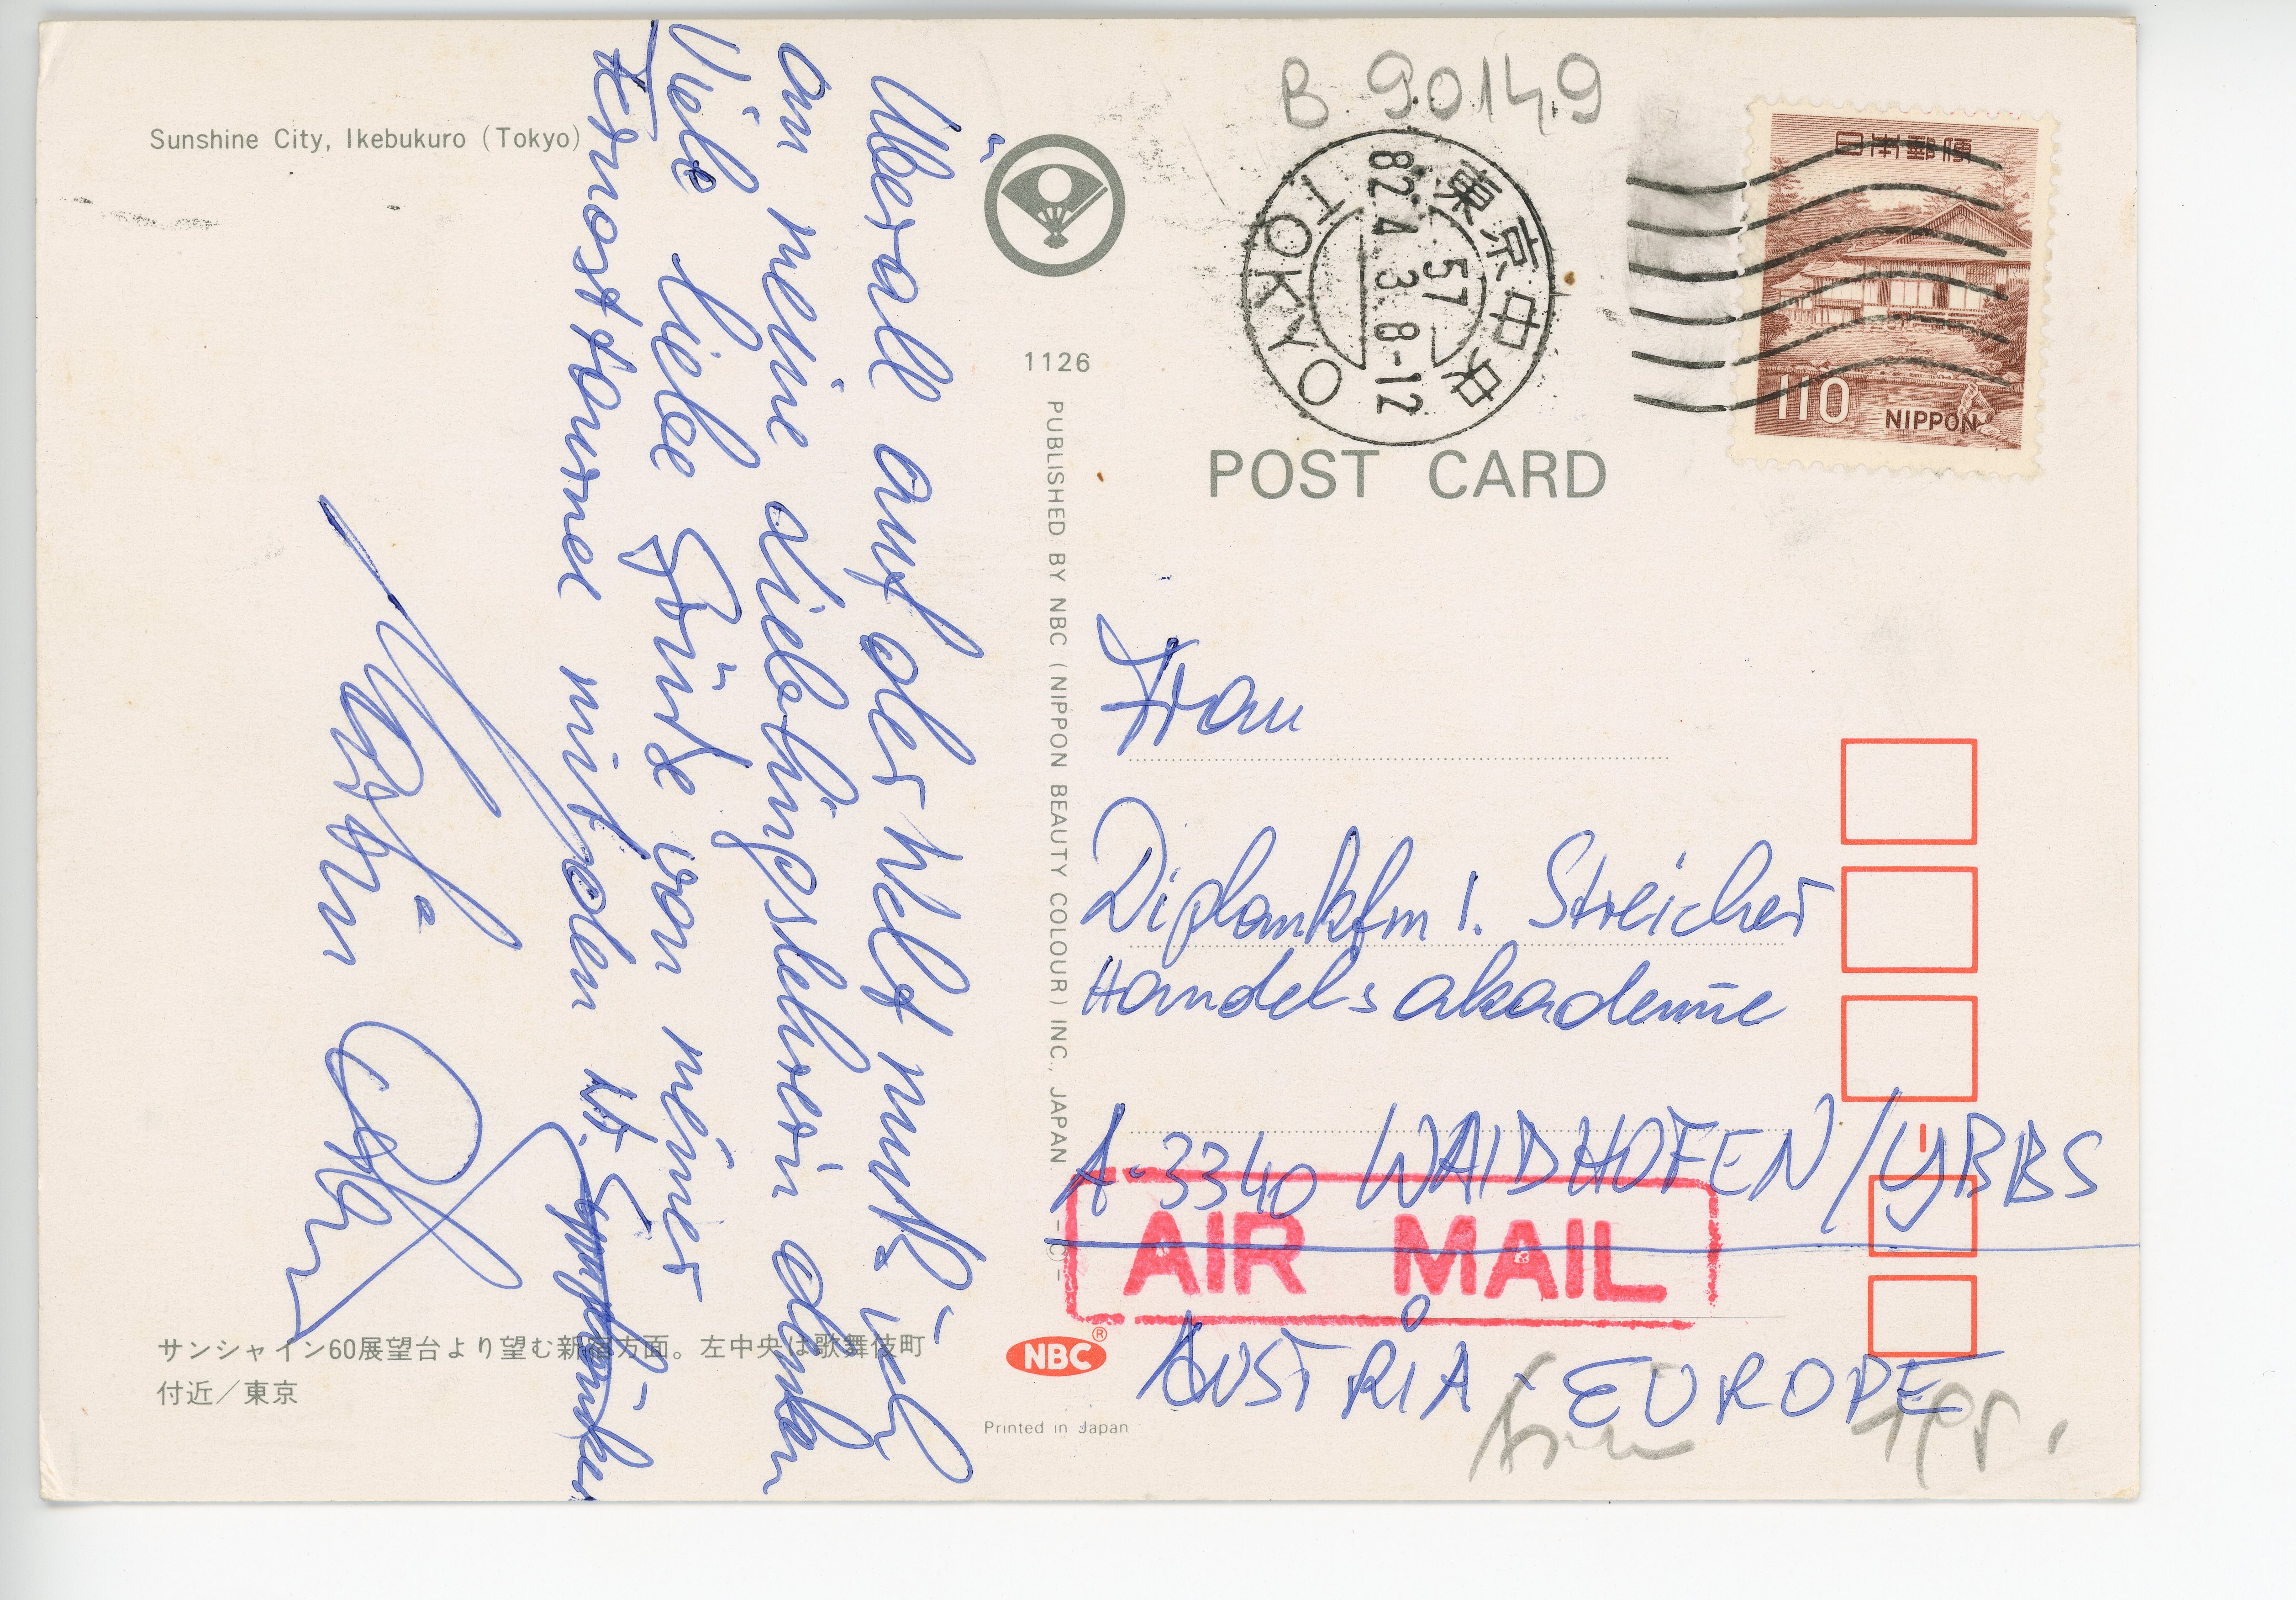 B 90149
Sunshine City, Ikebukuro (Tokyo)
Überall auf der Welt muß ich
an meine Lieblingslehrerin denken
Viele liebe Grüße von meiner
Fernosttournee mit den W. Symphonikern
サンシャイン60展望台より望む新宿方面。左中央は歌舞伎町
付近／東京
1126
PUBLISHED BY NBC (NIPPON BEAUTY COLOUR) INC., JAPAN
NBC®
Printed in Japan
東京中央
57
82.4.3.8-12
TOKYO
日本郵便
110 NIPPON
POST CARD
Frau
Diplomkfm I. Streicher
Handelsakademie
A-3340 WAIDHOFEN/YBBS
AIR MAIL
AUSTRIA - EUROPE